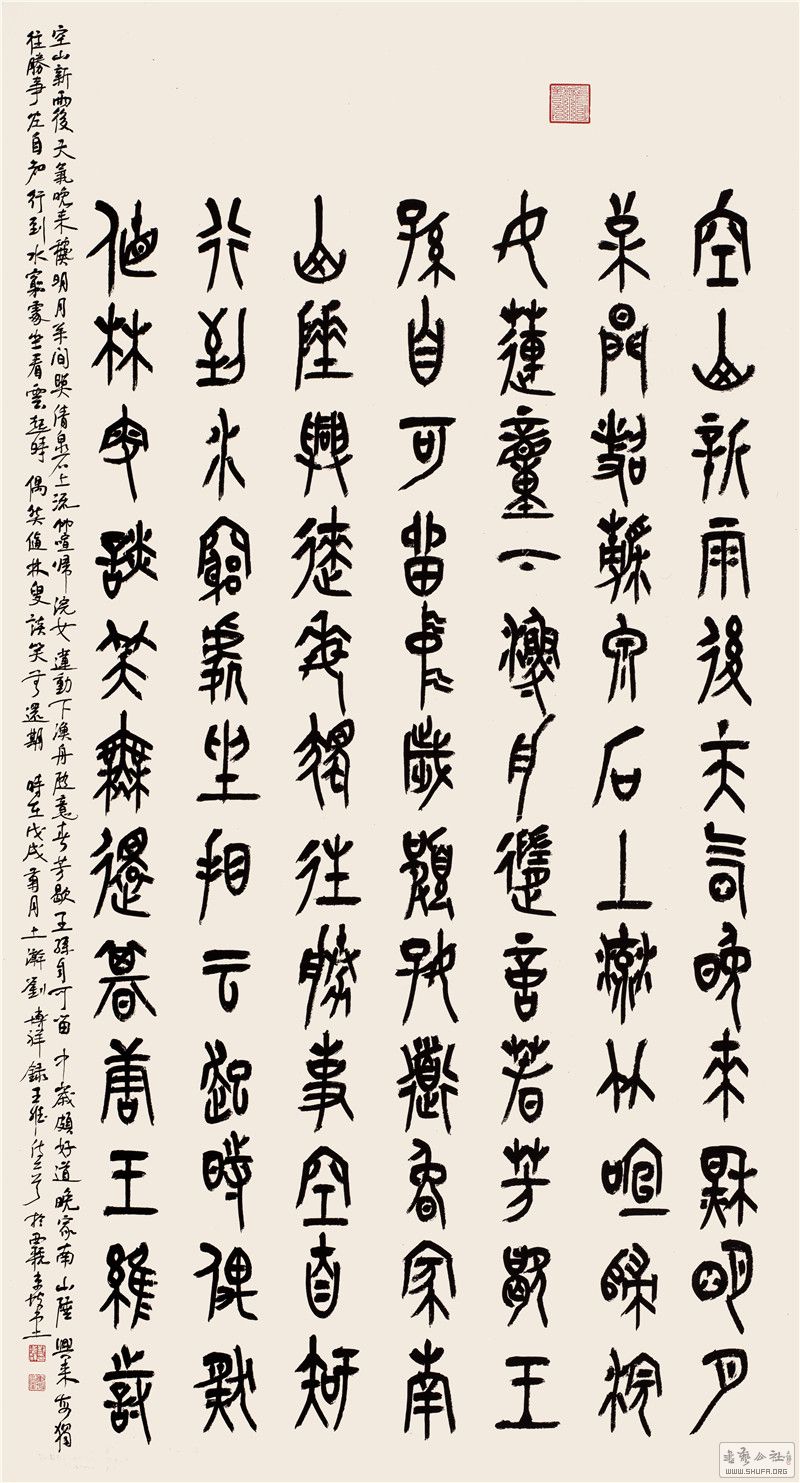 空山新雨後天氣晚来秋明月
松間照清泉石上流竹喧歸浣
女蓮動下漁舟隨意春芳歇王
孫自可留中歲頗好道晚家南
山陲興来每獨往勝事空自知
行到水窮處坐看云起時偶然
值林叟談笑無還期唐王維詩
空山新雨後天氣晚来秋明月松間照清泉石上流竹喧歸浣女蓮動下漁舟隨意春芳歇王孫自可留 中歲頗好道晚家南山陲興来每獨
往勝事空自知行到水窮處坐看雲起時偶然值林叟談笑无還期 時在戊戌菊月上澣劉博祥錄王維詩二首於
書藝公社
WWW.SHUFA.ORG